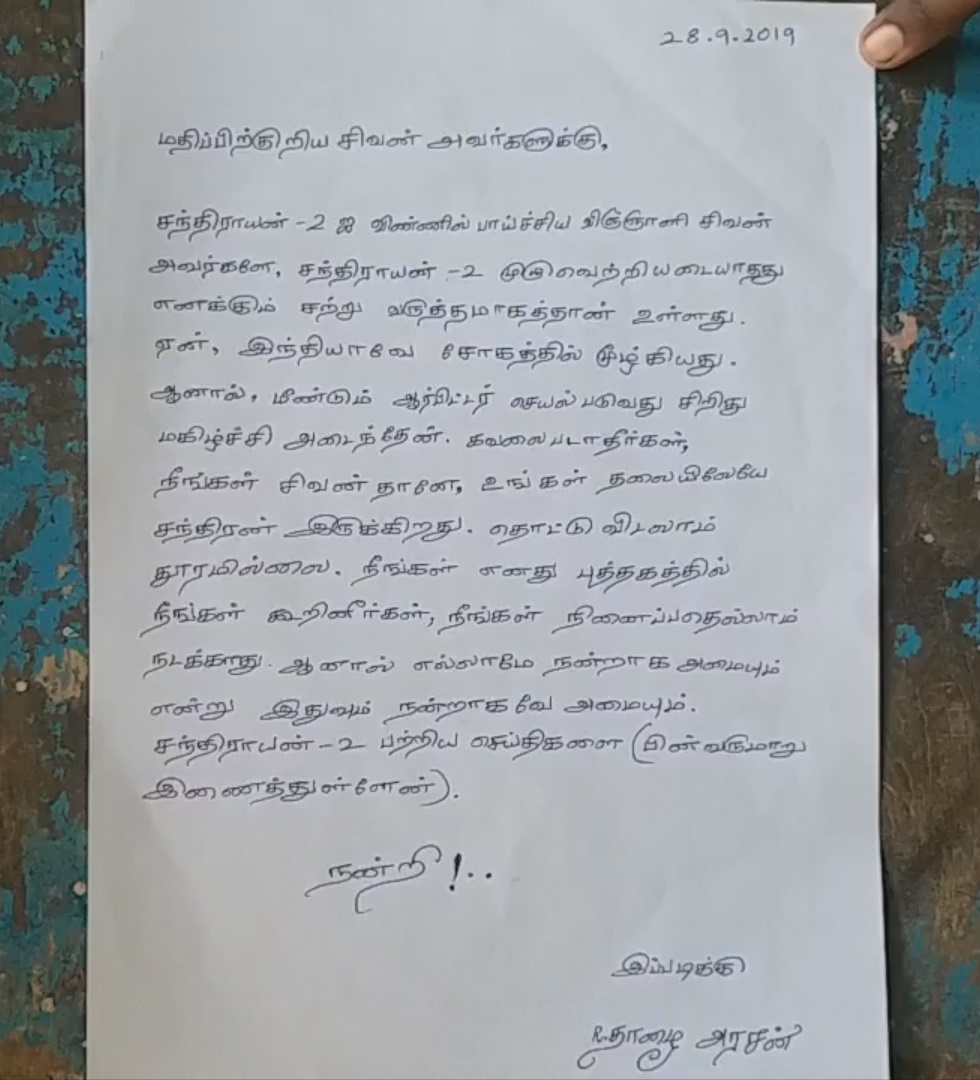 28.9.2019
மதிப்பிற்குறிய சிவன் அவர்களுக்கு,
சந்திராயன் -2 ஐ விண்ணில் பாய்ச்சிய விஞ்ஞானி சிவன்
அவர்களே, சந்திராயன் -2 முழுவெற்றியடையாதது
எனக்கும் சற்று வருத்தமாகத்தான் உள்ளது.
ஏன், இந்தியாவே சோகத்தில் மூழ்கியது.
ஆனால், மீண்டும் ஆர்பிட்டர் செயல்படுவது சிறிது
மகிழ்ச்சி அடைந்தேன். கவலைபடாதீர்கள்,
நீங்கள் சிவன் தானே, உங்கள் தலையிலேயே
சந்திரன் இருக்கிறது. தொட்டு விடலாம்
தூரமில்லை. நீங்கள் எனது புத்தகத்தில்
நீங்கள் கூறினீர்கள், நீங்கள் நினைப்பதெல்லாம்
நடக்காது. ஆனால் எல்லாமே நன்றாக அமையும்
என்று இதுவும் நன்றாகவே அமையும்.
சந்திராயன் -2 பற்றிய செய்திகளை (பின்வருமாறு
இணைத்துள்ளேன்).
நன்றி !..
இப்படிக்கு
R.தாழை அரசன்